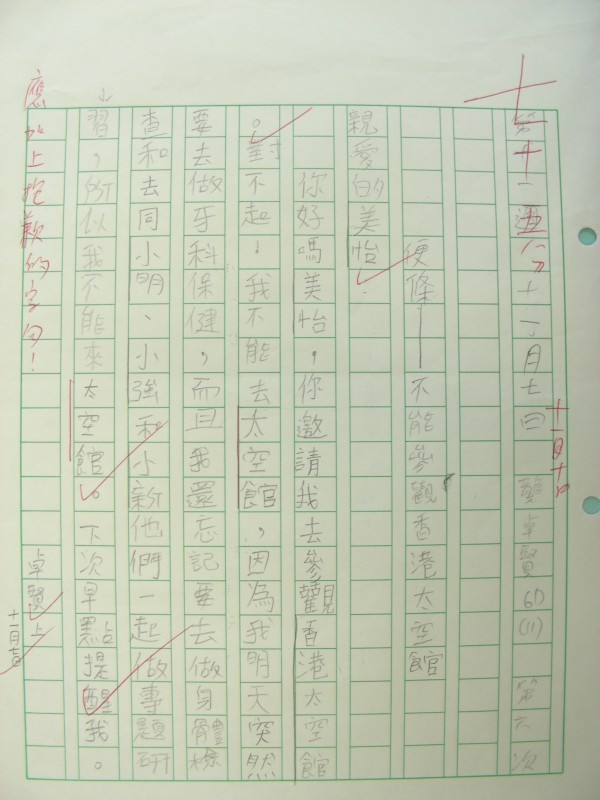 第十一週 十一月七日 卓賢 6D (11) 第六次
十一月十日
便條——不能參觀香港太空館
親愛的美怡：
你好嗎美怡，你邀請我去參觀香港太空館
。對不起！我不能去太空館，因為我明天突然
要去做牙科保健，而且我還忘記要去做身體檢
查和去同小明、小強和小新他們一起做專題研
習，所以我不能來太空館。下次早點提醒我。
卓賢上
應加上抱歉的字句！